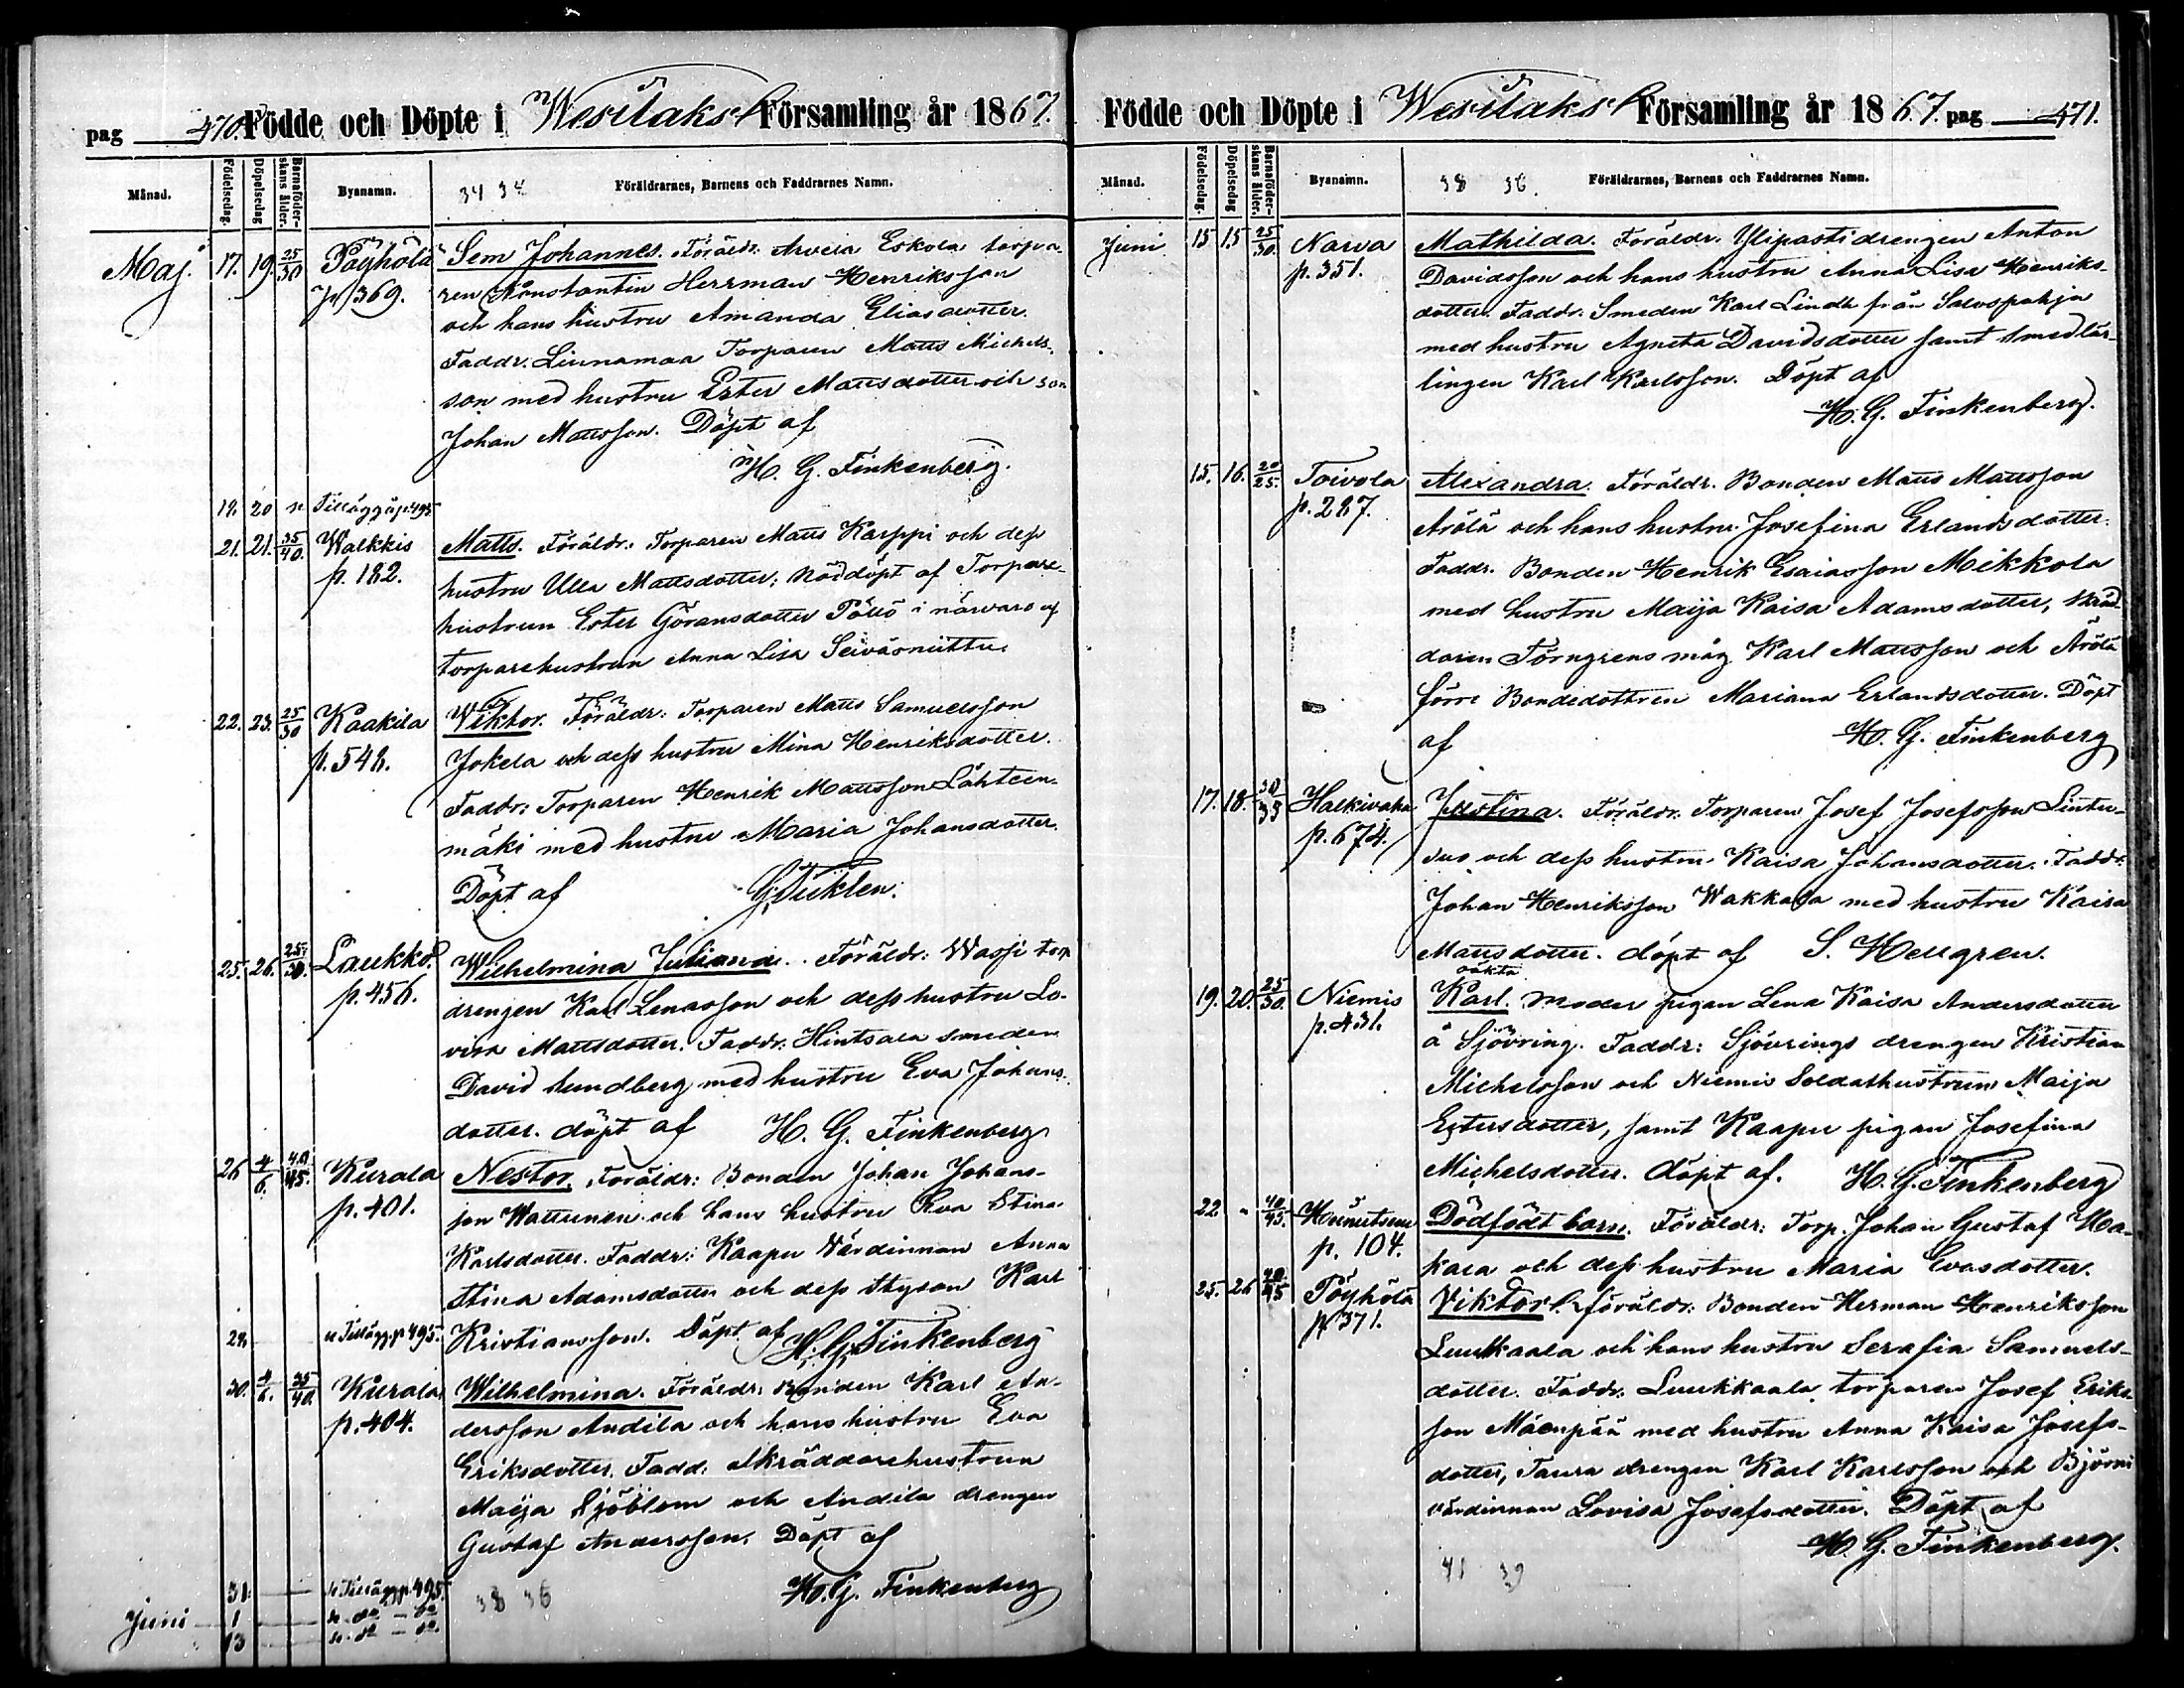 pag 470. Födde och Döpte i Wesilaks Församling år 1867.
Månad. Födelsedag. Döpelsedag Barnaföder-skans ålder. Byanamn. 34 34 Föräldrarnes, Barnens och Faddrarnes Namn.
Maj. 17. 19. 25/30 Pöyhölä Sem Johannes. Föräldr. Arvela Eskola torpa-
p. 369. ren Konstantin Herrman Henriksson
och hans hustru Amanda Eliasdotter.
Faddr. Linnamaa Torparen Matts Michels-
son med hustru Ester Mattsdotter och son
Johan Mattsson. Döpt af
H. G. Finkenberg.
19. 20 se Tillägg å p. 495
21. 21. 35/40. Walkkis Matts. Föräldr. Torparen Matts Karppi och dess
p. 182. hustru Ulla Mattsdotter; nöddöpt af Torpare-
hustrun Ester Göransdotter Pöllö i närvaro af
torparehustrun Anna Lisa Seiväsniittu
22. 23. 25/30 Kaakila Wiktor. Föräldr: Torparen Matts Samuelsson
p. 548. Jokela och dess hustru Mina Henriksdotter.
Faddr: Torparen Henrik Mattsson Lähteen-
mäki med hustru Maria Johansdotter.
Döpt af
25. 26. 25/30. Laukko. Wilhelmina Juliana. Föräldr: Wassi torp
p. 456. drengen Karl Lenasson och dess hustru Lo-
visa Mattsdotter. Faddr: Hintsala smeden
David Lundberg med hustru Eva Johans-
dotter. döpt af H. G. Finkenberg
26 4/6. 40/45. Kurala Nestor. Föräldr: Bonden Johan Johans-
p. 401. son Wattunen och hans hustru Eva Stina
Karlsdotter. Faddr: Kaapu Värdinnan Anna
Stina Adamsdotter och dess styson Karl
28. se Tillägg p. 495. Kristiansson. Döpt af H. G. Finkenberg
30. 4/6. 35/40. Kurala Wilhelmina. Föräldr: Bonden Karl An-
p. 404. dersson Andila och hans hustru Eva
Eriksdotter. Fadd. Skräddarehustrun
Maija Sjöblom och Andila drengen
Gustaf Andersson. Döpt af
31. se Tillägg p. 495. 38 36 H. G. Finkenberg
Juni 1 se do - do
13 se do - do.
Födde och Döpte i Wesilaks Församling år 1867. pag 471.
Månad. Födelsedag. Döpelsedag Barnaföder-skans ålder. Byanamn. 38 36. Föräldrarnes, Barnens och Faddrarnes Namn.
Juni 15 15 25/30. Narva Mathilda. Föräldr. Ylipastidrengen Anton
p. 351. Davidsson och hans hustru Anna Lisa Henriks-
dotter. Faddr. Smeden Karl Lindh från Salospohja
med hustru Agneta Davidsdotter samt smedlär-
lingen Karl Karlsson. Döpt af
H. G. Finkenberg.
15. 16. 20/25. Toivola Alexandra. Föräldr. Bonden Matts Mattsson
p. 287. Arölä och hans hustru Josefina Erlandsdotter.
Faddr. Bonden Henrik Esaiasson Mikkola
med hustru Maija Kaisa Adamsdotter, skräd-
daren Törngrens måg Karl Mattsson och Arölä
förre Bondedottren Mariana Erlandsdotter. Döpt
af H. G. Finkenberg
17. 18. 30/35 Halkivaha Justina. Föräldr. Torparen Josef Josefsson Lintu-
p. 674. suo och dess hustru Kaisa Johansdotter. Faddr.
Johan Henriksson Wakkala med hustru Kaisa
Mattsdotter. döpt af S. Hellgren.
oäkta
19. 20. 25/30. Niemis Karl. Moder pigan Lena Kaisa Andersdotter
p. 431. å Sjövring. Faddr: Sjövrings drengen Kristian
Michelsson och Niemis Soldathustrun Maija
Estersdotter, samt Kaapu pigan Josefina
Michelsdotter. döpt af. H. G. Finkenberg
22 " 40/45. Dödfödt barn. Föräldr: Torp. Johan Gustaf Ma-
p. 104. kara och dess hustru Maria Evasdotter.
25. 26 40/45 Pöyhölä Viktor. föräldr: Bonden Herman Henriksson
p. 371. Luukkaala och hans hustru Serafia Samuels-
dotter. Faddr. Luukkaala torparen Josef Eriks-
son Mäenpää med hustru Anna Kaisa Josefs-
dotter, Taura drengen Karl Karlsson och Björni
värdinnan Lovisa Josefsdotter. Döpt af
H. G. Finkenberg.
41 39